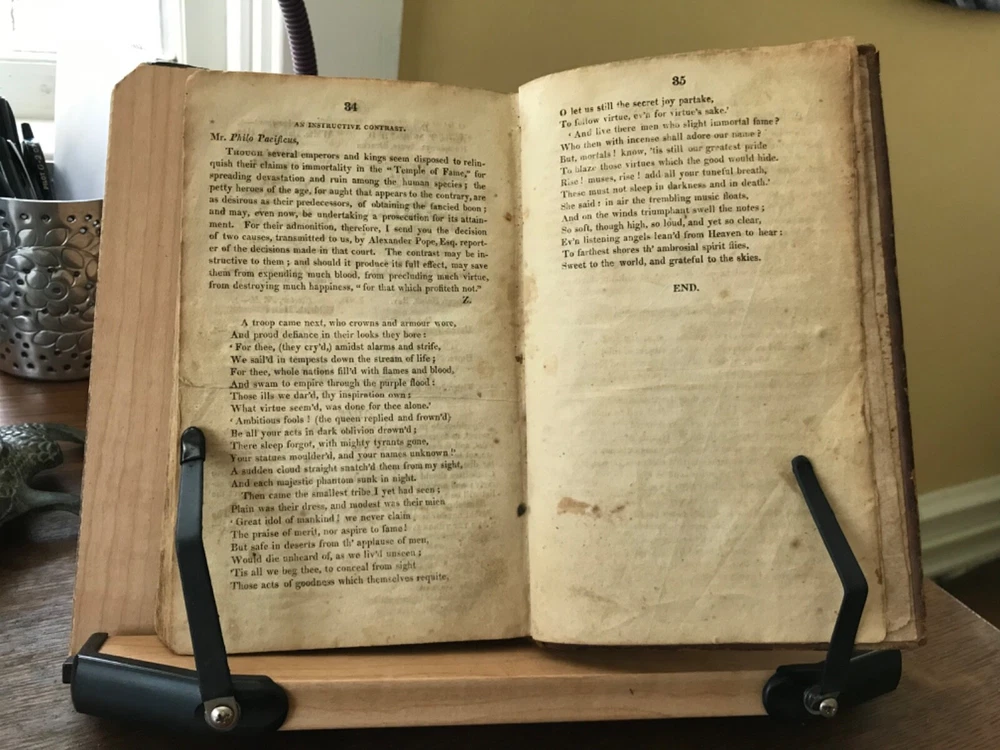 34
AN INSTRUCTIVE CONTRAST.
Mr. Philo Pacificus,
THOUGH several emperors and kings seem disposed to relin-
quish their claims to immortality in the "Temple of Fame," for
spreading devastation and ruin among the human species; the
petty heroes of the age, for aught that appears to the contrary, are
as desirous as their predecessors, of obtaining the fancied boon;
and may, even now, be undertaking a prosecution for its attain-
ment. For their admonition, therefore, I send you the decision
of two causes, transmitted to us, by Alexander Pope, Esq. report-
er of the decisions made in that court. The contrast may be in-
structive to them; and should it produce its full effect, may save
them from expending much blood, from precluding much virtue,
from destroying much happiness, "for that which profiteth not."
Z.
A troop came next, who crowns and armour wore,
And proud defiance in their looks they bore:
‘For thee, (they cry'd,) amidst alarms and strife,
We sail'd in tempests down the stream of life;
For thee, whole nations fill'd with flames and blood,
And swam to empire through the purple flood:
Those ills we dar'd, thy inspiration own;
What virtue seem'd, was done for thee alone.’
‘Ambitious fools! (the queen replied and frown'd)
Be all your acts in dark oblivion drown'd;
There sleep forgot, with mighty tyrants gone,
Your statues moulder'd, and your names unknown!’
A sudden cloud straight snatch'd them from my sight,
And each majestic phantom sunk in night.
Then came the smallest tribe I yet had seen;
Plain was their dress, and modest was their mien
‘Great idol of mankind! we never claim
The praise of merit, nor aspire to fame!
But safe in deserts from th' applause of men,
Would die unheard of, as we liv'd unseen;
'Tis all we beg thee, to conceal from sight
Those acts of goodness which themselves requite,
35
O let us still the secret joy partake,
To follow virtue, ev'n for virtue's sake.’
‘And live there men who slight immortal fame?
Who then with incense shall adore our name?
But, mortals! know, 'tis still our greatest pride
To blaze those virtues which the good would hide.
Rise! muses, rise! add all your tuneful breath,
These must not sleep in darkness and in death.’
She said: in air the trembling music floats,
And on the winds triumphant swell the notes;
So soft, though high, so loud, and yet so clear,
Ev'n listening angels lean'd from Heaven to hear:
To farthest shores th' ambrosial spirit flies,
Sweet to the world, and grateful to the skies.
END.